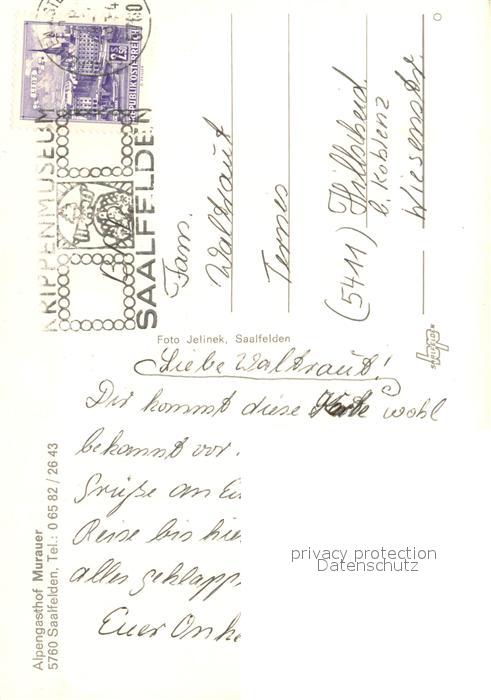 REPUBLIK ÖSTERREICH
KRIPPENMUSEUM
SAALFELDEN
Fam.
Waltraut
Ternes
(5411) Hillscheid
b. Koblenz
Wiesenstr.
Foto Jelinek, Saalfelden
Liebe Waltraut!
Dir kommt diese Karte wohl
bekannt vor.
Grüße an Eu
Reise bis hie
alles geklapp
Euer Onke
Alpengasthof Murauer
5760 Saalfelden, Tel.: 0 65 82 / 26 43
privacy protection
Datenschutz